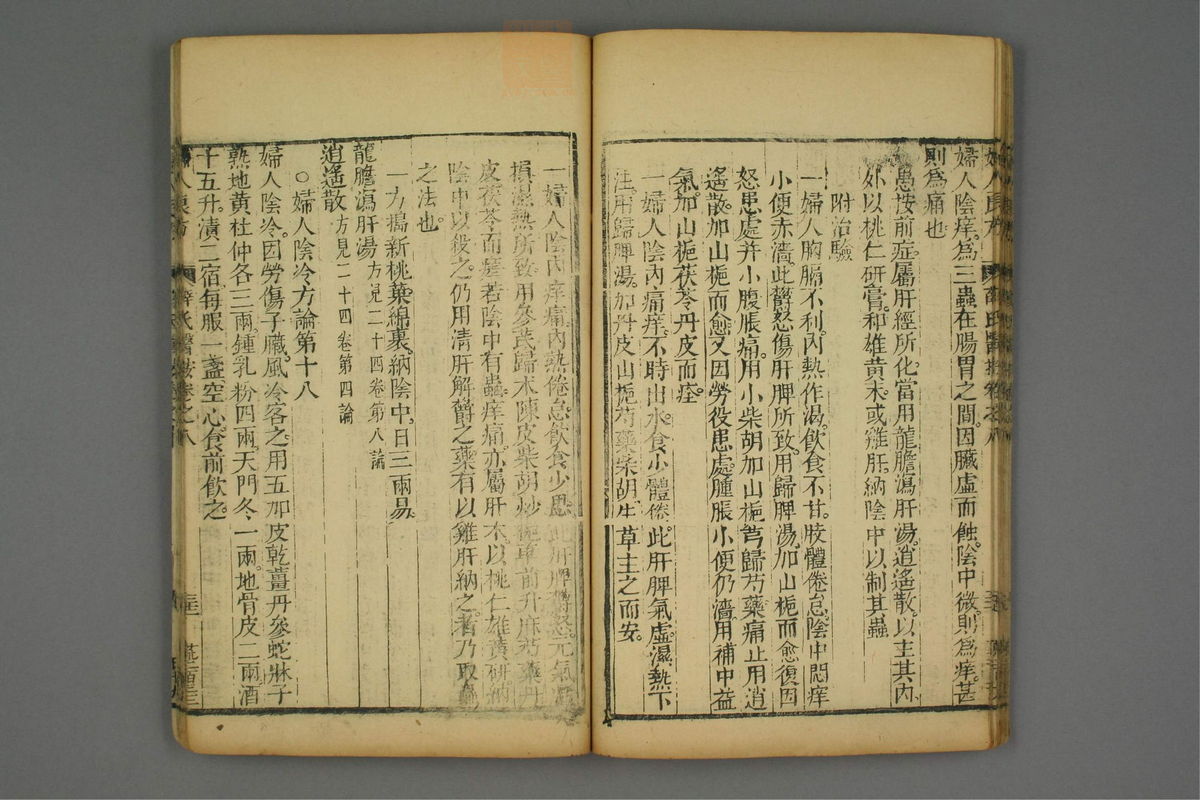 婦人陰痒。爲三蟲在腸胃之間。因臟虛而蝕。陰中微。則爲痒。甚
則爲痛也
愚按前症。屬肝經所化。當用龍膽瀉肝湯。逍遙散。以主其內
外以桃仁研膏。和雄黃末。或雞肝。納陰中以制其蟲
附治驗
一婦人胸膈不利。內熱作渴。飲食不甘。肢體倦怠。陰中悶痒
小便赤濇。此鬱怒傷肝脾所致。用歸脾湯。加山梔而愈。復因
怒患處并小腹脹痛。用小柴胡加山梔芎歸芍藥痛止。用逍
遙散。加山梔而愈。又因勞役患處腫脹。小便仍濇。用補中益
氣。加山梔茯苓丹皮而痊
一婦人陰內痛痒。不時出水。食少體倦。此肝脾氣虛。濕熱下
注。用歸脾湯。加丹皮山梔芍藥柴胡生草主之而安。
一婦人陰內痒痛。內熱倦怠。飲食少思。此肝脾鬱怒。元氣
損。濕熱所致。用參芪歸朮陳皮柴胡炒梔車前升麻芍藥丹
皮茯苓而痊。若陰中有蟲痒痛。亦屬肝木。以桃仁雄黃研納
陰中以殺之。仍用清肝解鬱之藥。有以雞肝納之者。乃取
之法也。
一方搗新桃葉綿裹。納陰中。日三兩易。
龍膽瀉肝湯 方見二十四卷第八論
逍遙散 方見二十四卷第四論
○婦人陰冷方論第十八
婦人陰冷。因勞傷子臟。風冷客之。用五加皮乾薑丹參蛇牀子
熟地黃杜仲各三兩。鍾乳粉四兩。天門冬一兩。地骨皮二兩。酒
十五升。漬二宿每服一盞空心。食前飲之。